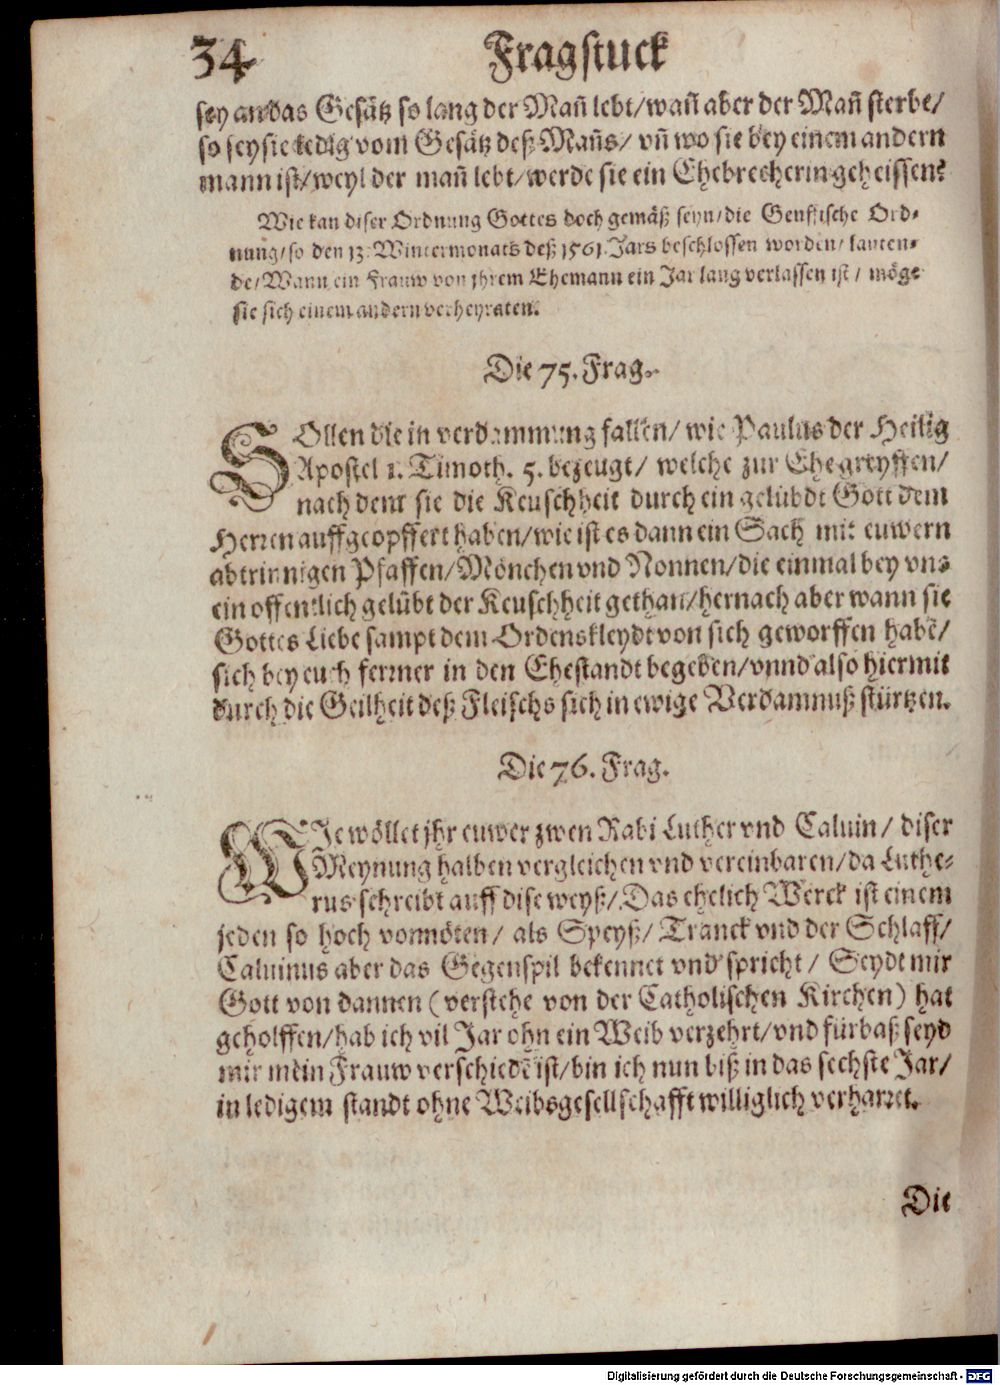 34 Fragstuck
sey an das Gesätz so lang der Mañ lebt/ wañ aber der Mañ sterbe/
so sey sie ledig vom Gesätz deß Mañs/ vñ wo sie bey einem andern
mann ist/ weyl der mañ lebt/ werde sie ein Ehebrecherin geheissen?
Wie kan diser Ordnung Gottes doch gemäß seyn/ die Genffische Ord-
nung/ so den 13. Wintermonats deß 1561. Jars beschlossen worden/ lauten-
de/ Wann ein Frauw von jhrem Ehemann ein Jar lang verlassen ist/ möge
sie sich einem andern verheyraten.
Die 75. Frag.
SOllen die in verdammung fallen/ wie Paulus der Heilig
Apostel 1. Timoth. 5. bezeugt/ welche zur Ehe greyffen/
nach dem sie die Keuschheit durch ein gelübdt Gott dem
Herren auffgeopffert haben/ wie ist es dann ein Sach mit euwern
abtrinnigen Pfaffen/ Mönchen vnd Nonnen/ die einmal bey vns
ein offentlich gelübt der Keuschheit gethan/ hernach aber wann sie
Gottes Liebe sampt dem Ordenskleydt von sich geworffen habē/
sich bey euch ferrner in den Ehestandt begeben/ vnnd also hiermit
durch die Geilheit deß Fleischs sich in ewige Verdamnuß stürtzen.
Die 76. Frag.
WJe wöllet jhr euwer zwen Rabi Luther vnd Caluin/ diser
Meynung halben vergleichen vnd vereinbaren/ da Luthe-
rus schreibt auff dise weyß/ Das ehelich Werck ist einem
jeden so hoch vonnöten/ als Speyß/ Tranck vnd der Schlaff/
Caluinus aber das Gegenspil bekennet vnd spricht/ Seydt mir
Gott von dannen (verstehe von der Catholischen Kirchen) hat
geholffen/ hab ich vil Jar ohn ein Weib verzehrt/ vnd fürbaß seyd
mir mein Frauw verschiedē ist/ bin ich nun biß in das sechste Jar/
in ledigem standt ohne Weibsgesellschafft williglich verharret.
Die
Digitalisierung gefördert durch die Deutsche Forschungsgemeinschaft - DFG